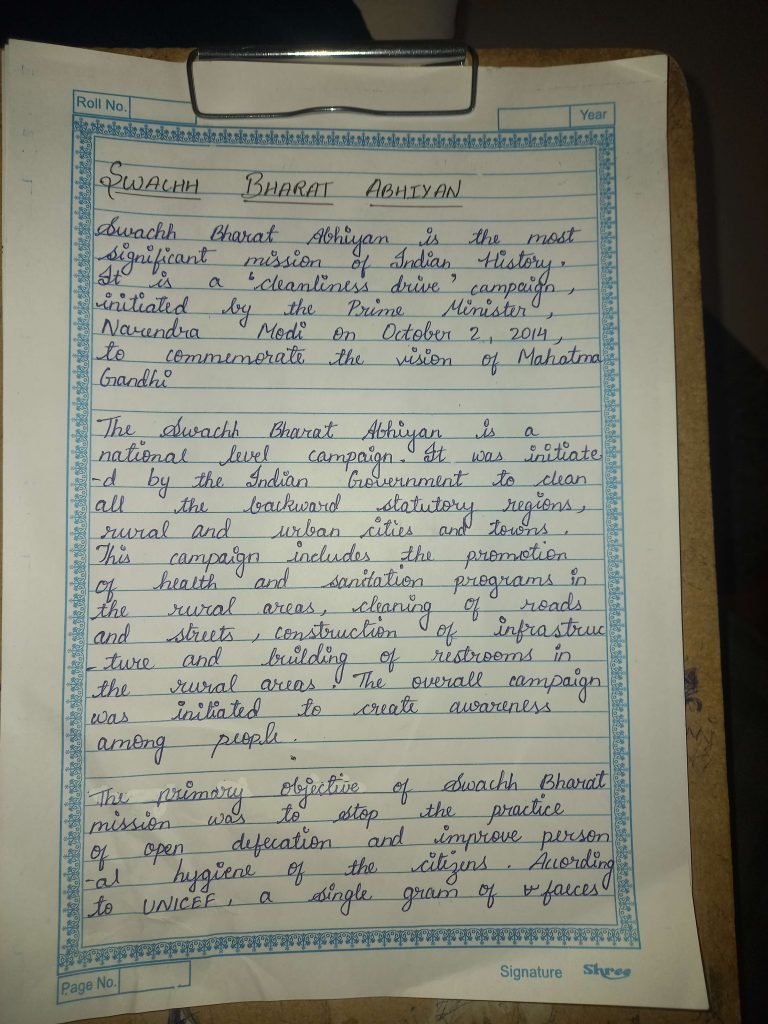 Roll No.
Year
SWACHH BHARAT ABHIYAN
Swachh Bharat Abhiyan is the most
significant mission of Indian History.
It is a 'cleanliness drive' campaign,
initiated by the Prime Minister,
Narendra Modi on October 2, 2014,
to commemorate the vision of Mahatma
Gandhi
The Swachh Bharat Abhiyan is a
national level campaign. It was initiate
-d by the Indian Government to clean
all the backward statutory regions,
rural and urban cities and towns.
This campaign includes the promotion
of health and sanitation programs in
the rural areas, cleaning of roads
and streets, construction of infrastruc
-ture and building of restrooms in
the rural areas. The overall campaign
was initiated to create awareness
among people.
The primary objective of Swachh Bharat
mission was to stop the practice
of open defecation and improve person
-al hygiene of the citizens. Acording
to UNICEF, a single gram of faeces
Page No.
Signature Shree